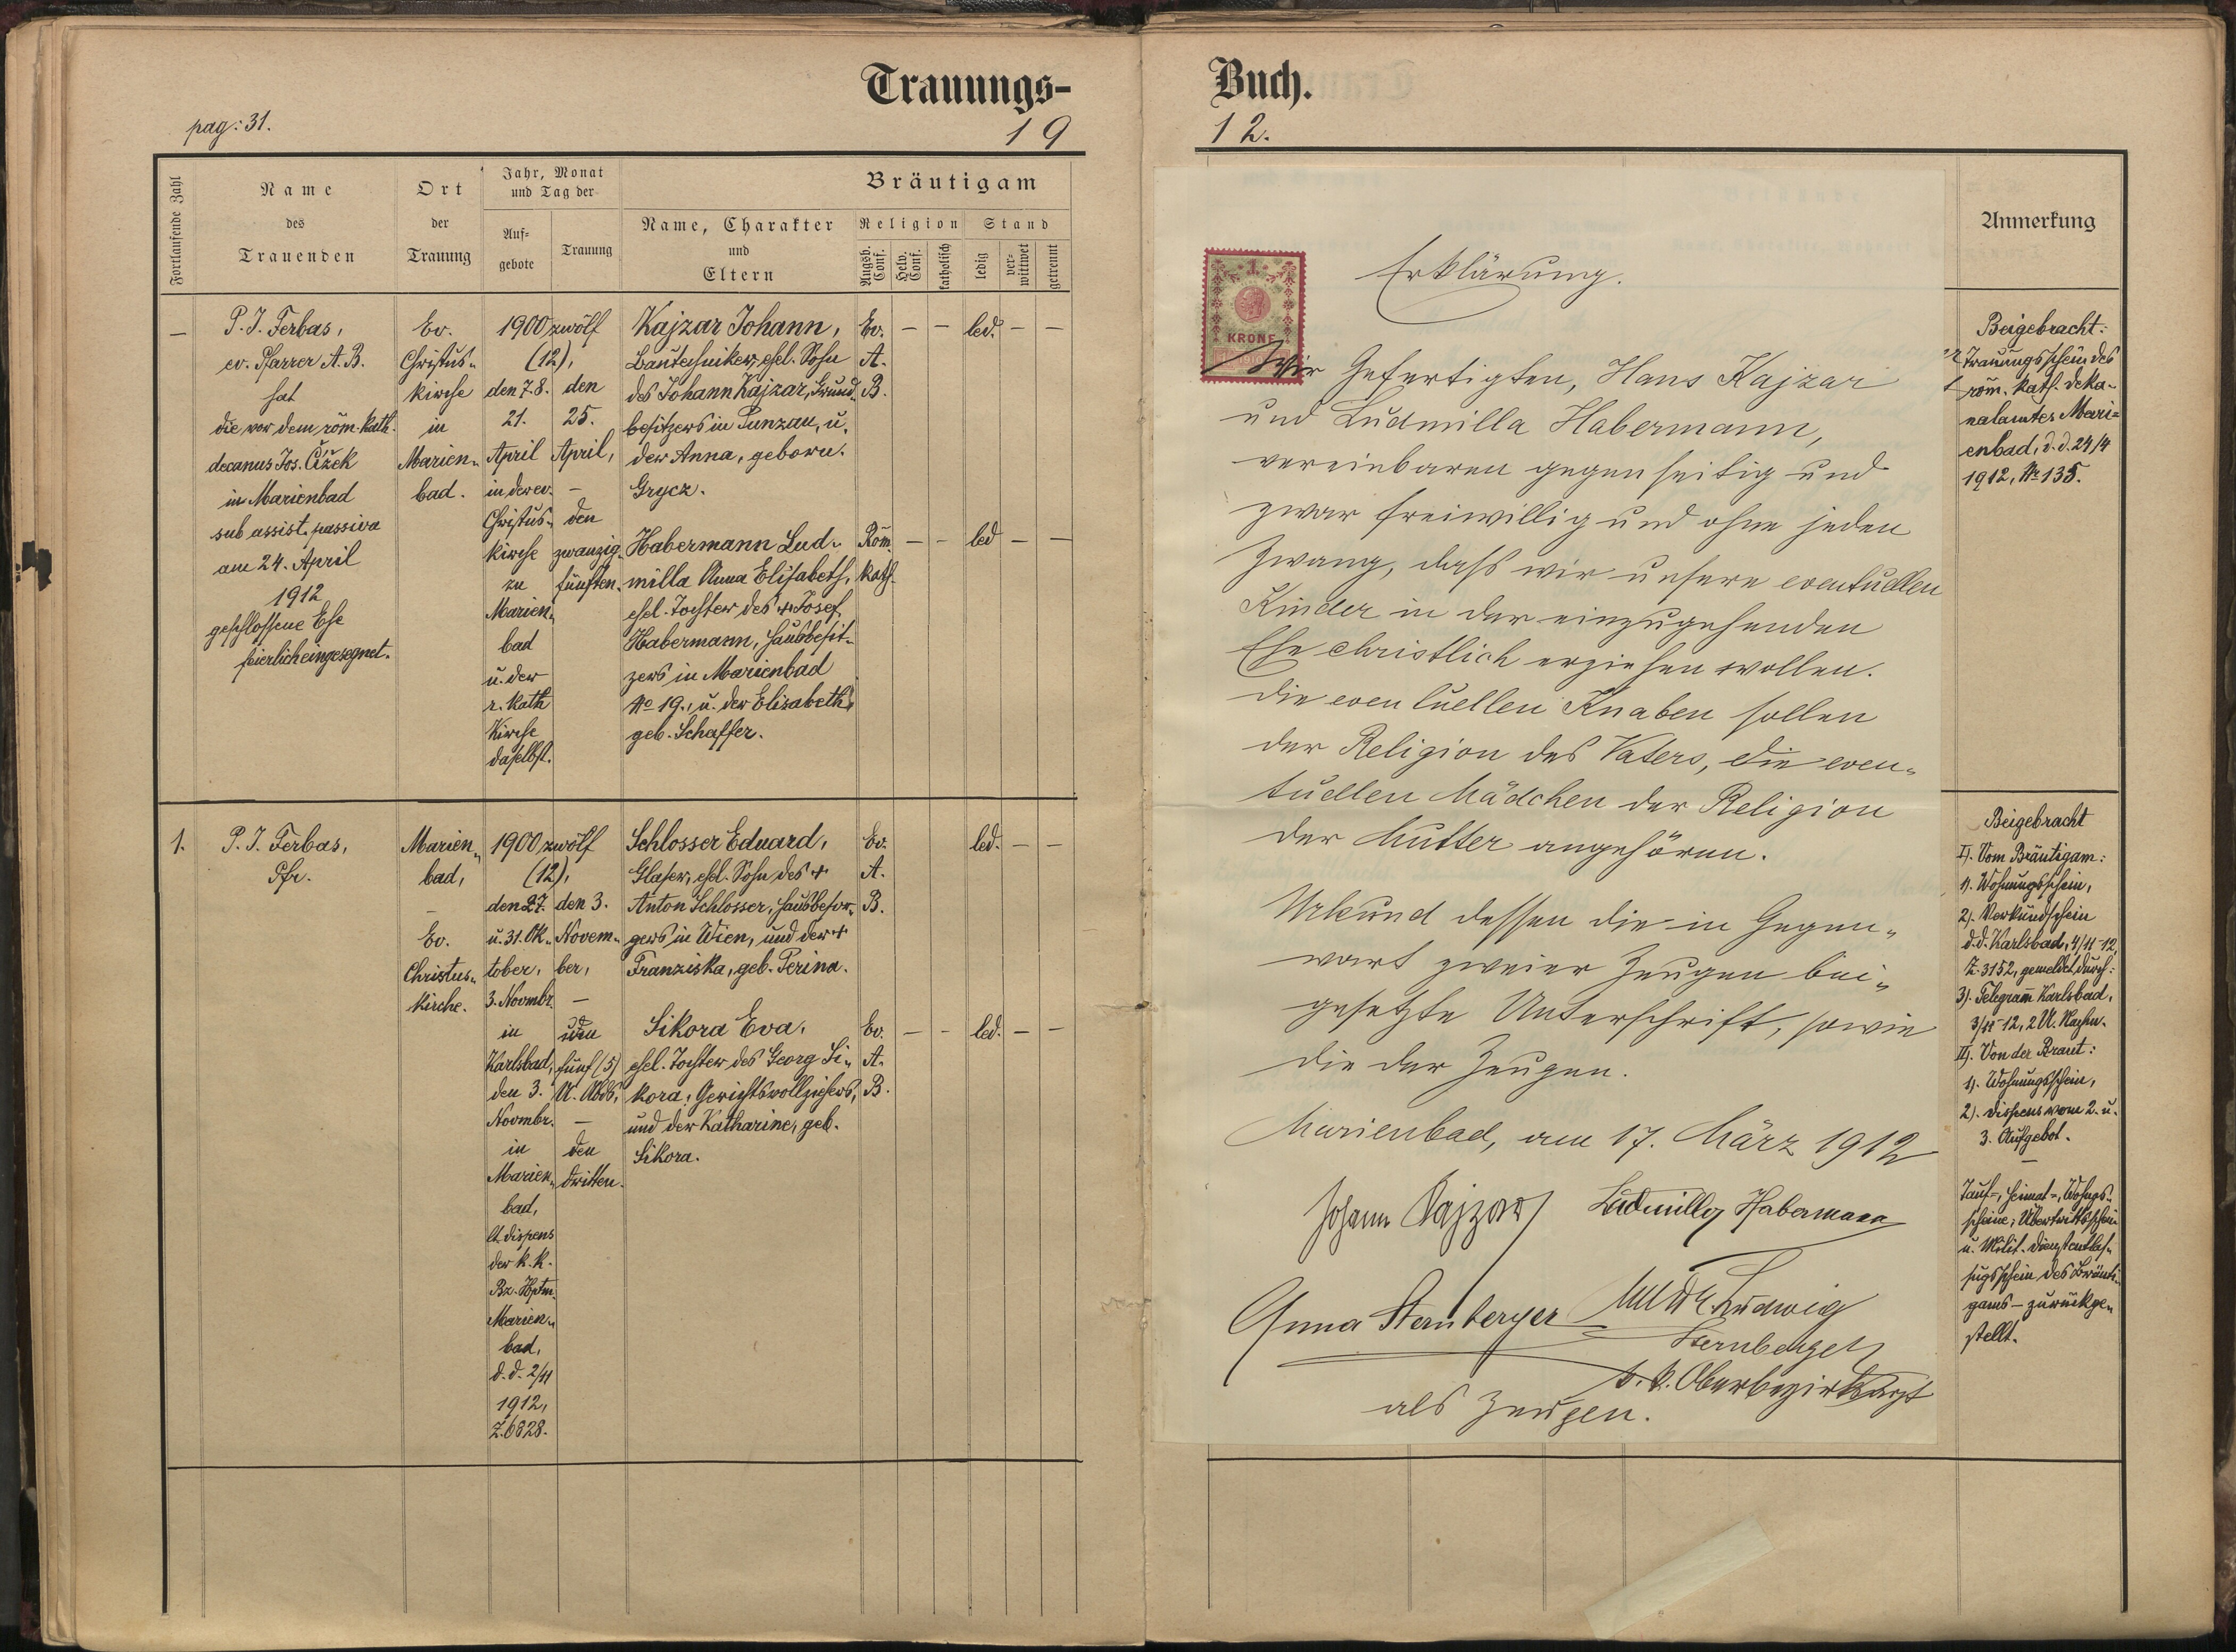 Trauungs-
pag: 31.
19
Fortlaufende Zahl
Name
des
Trauenden
Ort
der
Trauung
Jahr, Monat
und Tag der
Auf-
gebote
Trauung
Bräutigam
Name, Charakter
und
Eltern
Religion
Augsb. Conf.
Helv. Conf.
katholisch
Stand
ledig
ver-
wittwet
getrennt
—
P. J. Ferbas,
ev. Pfarrer A. B.
hat
die vor dem röm. kath.
decanus Jos. Čížek
in Marienbad
sub assist. passiva
am 24. April
1912
geschlossene Ehe
feierlich eingesegnet.
Ev.
Christus„
kirche
in
Marien„
bad.
1900 zwölf
(12),
den 7. 8.
21.
April
in der ev.
Christus„
kirche
zu
Marien„
bad
u. der
r. kath
Kirche
daselbst.
den
25.
April,
—
den
zwanzig„
fünften.
Kajzar Johann,
Bautechniker, ehel. Sohn
des Johann Kajzar, Grund„
besitzers in Punzau, u.
der Anna, geboru.
Grycz.
Ev. — — led. — —
A.
B.
Habermann Lud„
milla Anna Elisabeth,
ehel. Tochter des + Josef
Habermann, Hausbesit„
zers in Marienbad
No 19., u. der Elizabeth,
geb. Schaffer.
Röm. — — led — —
kath.
1.
P. J. Ferbas,
Pfr.
Marien„
bad,
—
Ev.
Christus„
kirche.
1900 zwölf
(12),
den 27.
u. 31. Ok„
tober,
3. Novmbr.
in
Karlsbad,
den 3.
Novmbr.
in
Marien„
bad,
lt. dispens
der k. k.
Bz. Hptm.
Marien„
bad,
d. d. 2/11
1912,
Z. 6828.
den 3.
Novem„
ber,
—
um
fünf (5)
U. Abds,
—
den
dritten.
Schlosser Eduard,
Glaser, ehel. Sohn des +
Anton Schlosser, Hausbesor„
gers in Wien, und der +
Franziska, geb. Perina.
Ev. led. — —
A.
B.
Sikora Eva,
ehel. Tochter des Georg Si„
kora, Gerichtsvollziehers,
und der Katharine, geb.
Sikora.
Ev. — — led. — —
A.
B.
Buch.
12.
Erklärung.
1
KRONE
Wir Gefertigten, Hans Kajzar
und Ludmilla Habermann,
vereinbaren gegenseitig und
zwar freiwillig und ohne jeden
Zwang, dass wir unsere eventuellen
Kinder in der einzugehenden
Ehe christlich erziehen wollen.
Die eventuellen Knaben sollen
der Religion des Vaters, die even„
tuellen Mädchen der Religion
der Mutter angehören.
Urkund dessen die in Gegen„
wart zweier Zeugen bei„
gesetzte Unterschrift, sowie
die der Zeugen.
Marienbad, am 17. März 1912
Johann Kajzar Ludmilla Habermann
Anna Sternberger Ludwig
Sternberger
k. k. Oberbezirksarzt
als Zeugen.
Anmerkung
Beigebracht:
Trauungsschein des
röm. kath. Deka„
nalamtes Mari=
enbad, d. d. 24/4
1912, No 135.
Beigebracht
I). Vom Bräutigam:
1). Wohnungsschein,
2). Verkündschein
d. d. Karlsbad, 4/11-12,
Z. 3152, gemeldet durch:
3). Telegram̄ Karlsbad,
3/11-12, 2 U. Nachm.
II). Von der Braut:
1). Wohnungsschein,
2). Dispens vom 2. u.
3. Aufgebot.
—
Tauf-, Heimat-, Wohngs„
scheine, Übertrittsschein
u. Milit. Dienstentlas„
sugsschein des Bräuti„
gams — zurückge„
stellt.